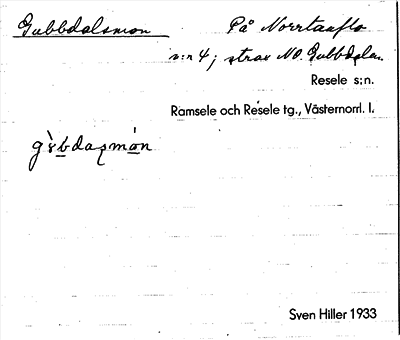 Gubbdalsmon På Norrtanflo
n:r 4; strax NO. Gubbdalen.
Resele s:n.
Ramsele och Resele tg., Västernorrl. l.
Sven Hiller 1933